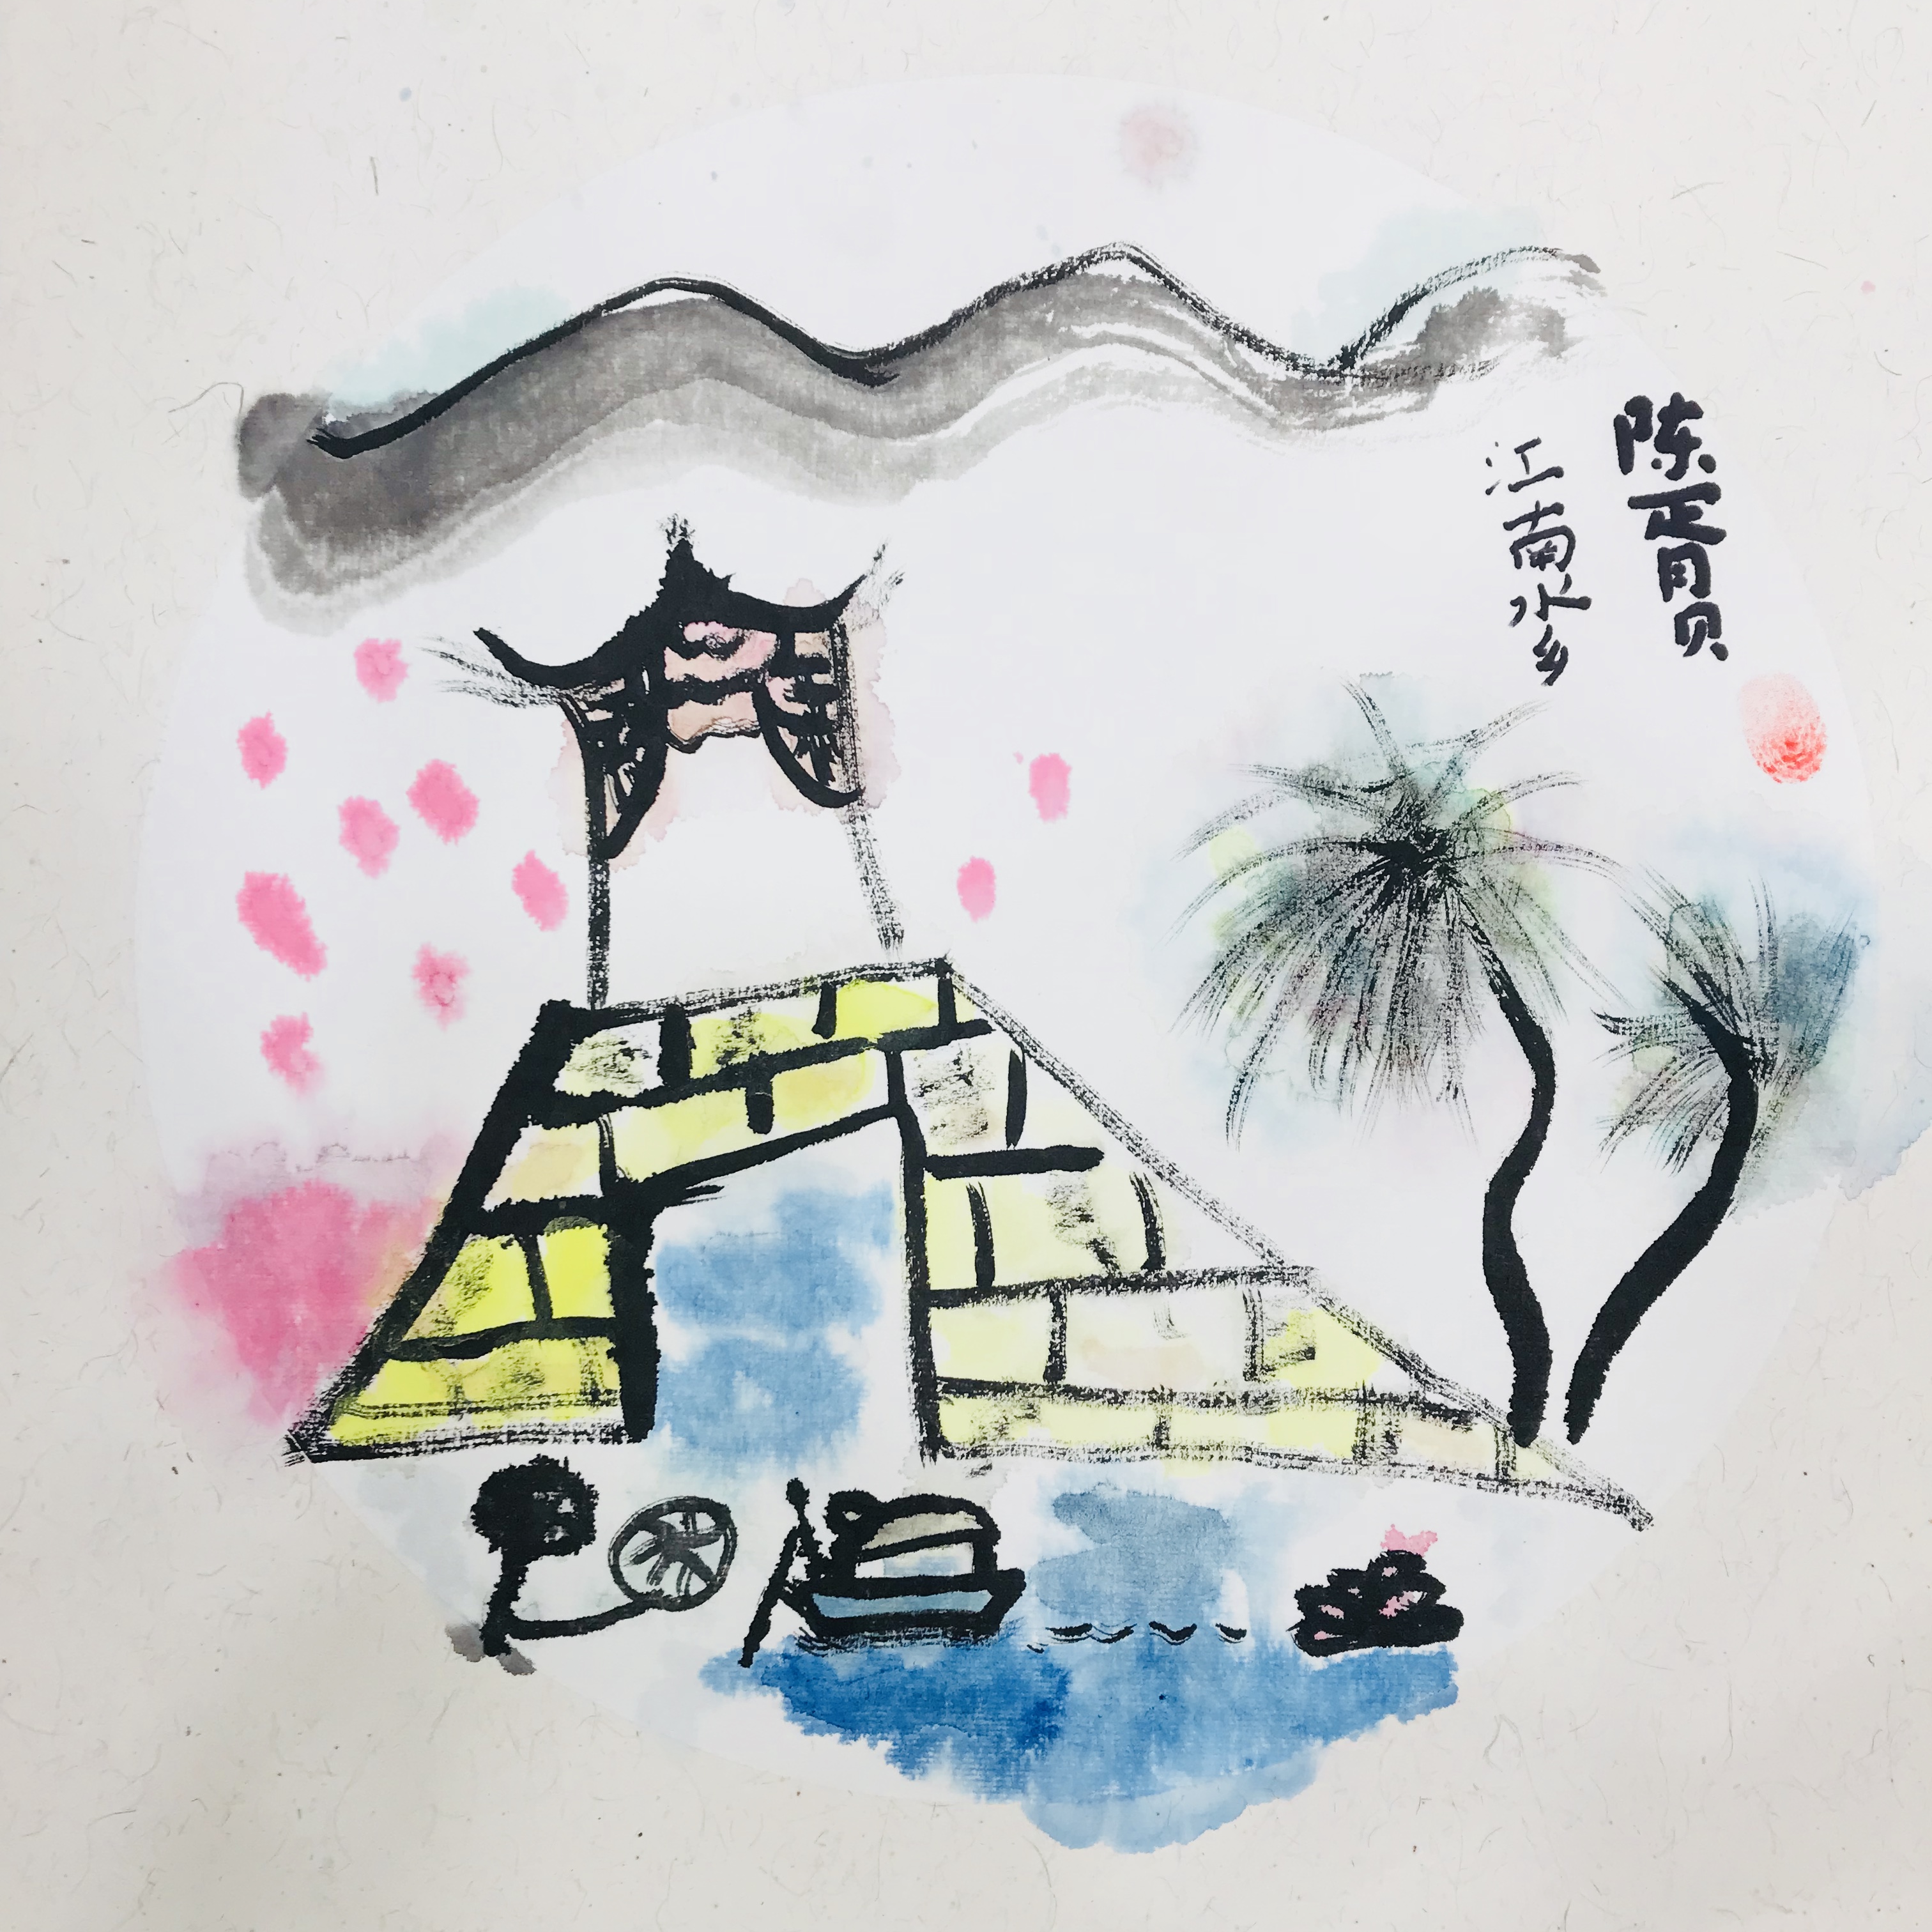 陈胥贝
江南水乡